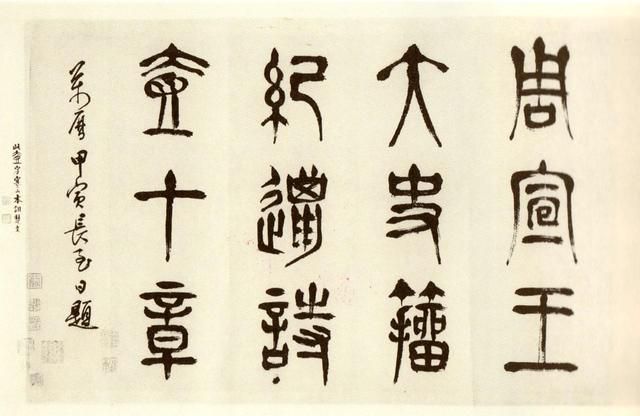 周宣王
大史籀
紀邋詩
壹十章
萬曆甲寅長至日題